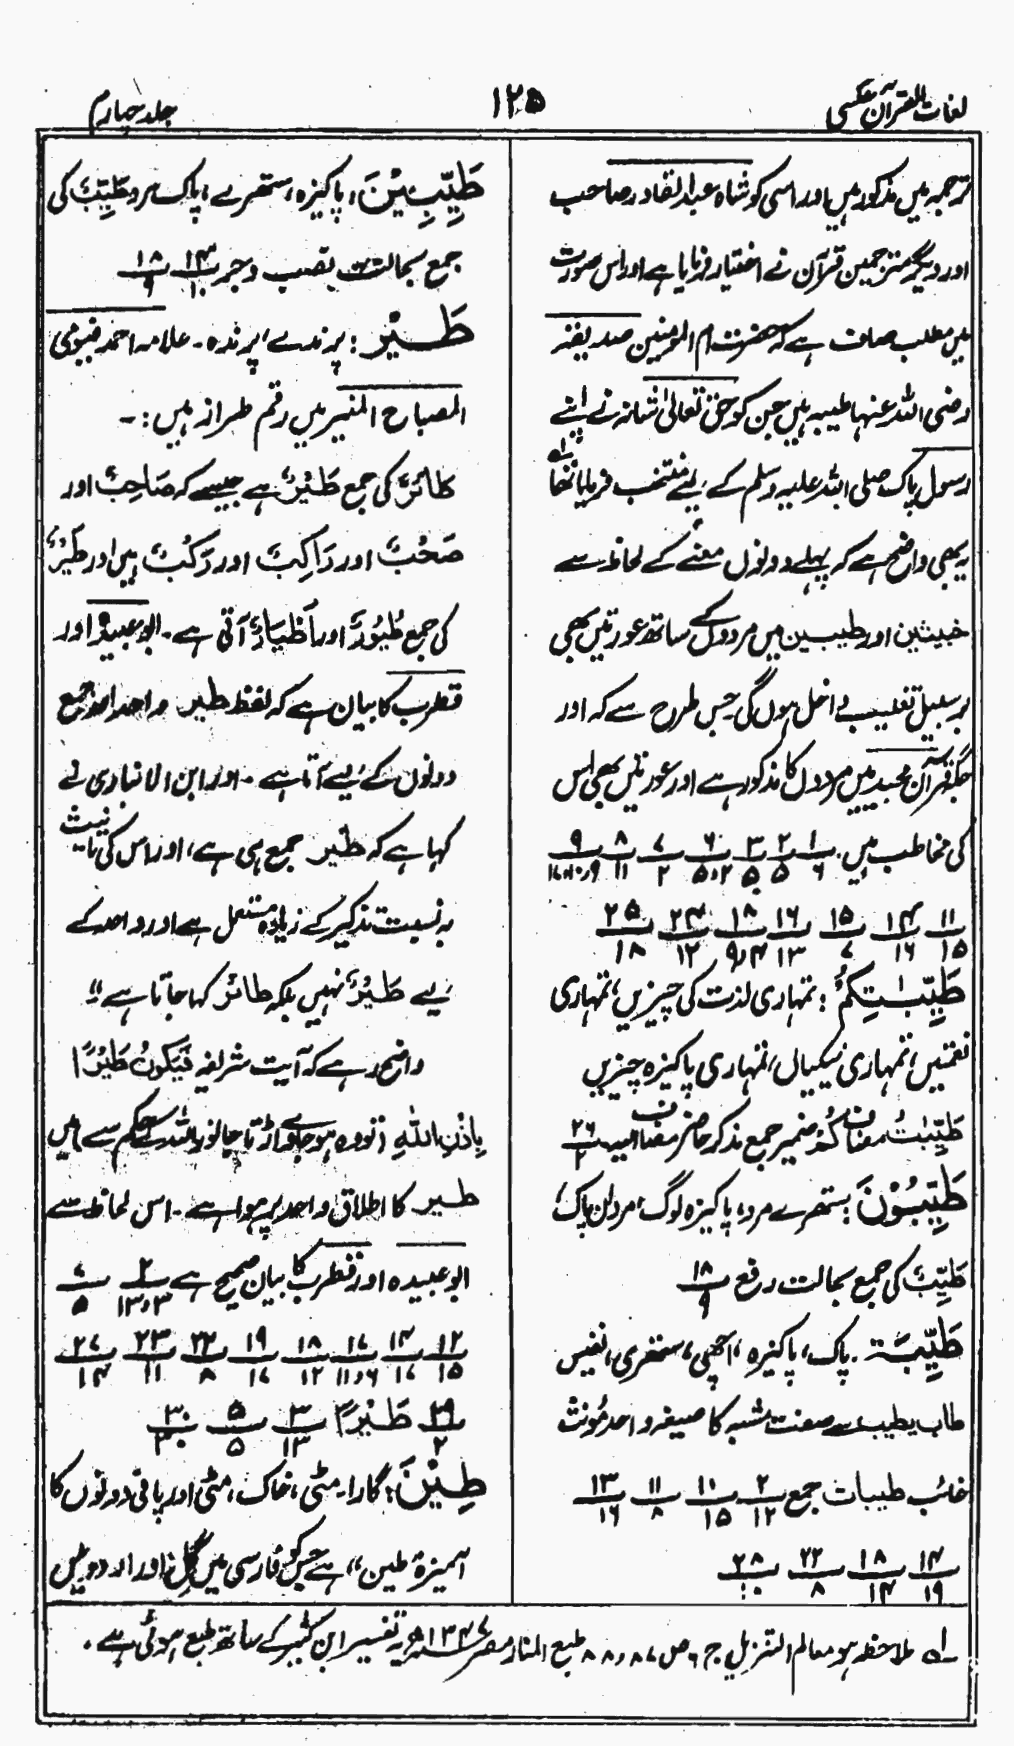 لغات القرآن عکسی
۱۲۵
جلد چہارم
ترجمہ میں مذکور ہیں اور اسی کو شاہ عبدالقادر صاحب
اور دیگر مترجمین قرآن نے اختیار فرمایا ہے اور اس صورت
میں مطلب صاف ہے کہ حضرت ام المومنین صدیقہ
رضی اللہ عنہا طیبہ ہیں جن کو حق تعالیٰ شانہ نے اپنے
رسول پاک صلی اللہ علیہ وسلم کے لئے منتخب فرمایا تھا
یہ بھی واضح ہے کہ پہلے دونوں معنے کے لحاظ سے
خبیثین اور طیبین میں مردوں کے ساتھ عورتیں بھی
بر سبیل تغلیب داخل ہوں گی جس طرح سے کہ اور
جگہ قرآن مجید میں مردوں کا مذکور ہے اور عورتیں بھی اس
کی مخاطب ہیں. ۱/۶ ۲/۵ ۳/۵ ۶/۵،۲ ۷/۲ ۸/۱۱ ۹/۱۷،۱۰،۹
۱۱/۱۵ ۱۴/۱۶ ۱۵/۷ ۱۶/۱۳ ۱۸/۹،۴ ۲۴/۱۲ ۲۵/۱۸
طَيِّبٰتِكُمْ : تمہاری لذت کی چیزیں، تمہاری
نعمتیں، تمہاری نیکیاں، تمہاری پاکیزہ چیزیں
طَيِّبٰتُ مضاف كُمْ ضمیر جمع مذکر حاضر مضاف الیہ ۲۶/۲
طَيِّبُوْنَ : ستھرے مرد، پاکیزہ لوگ، مردان پاک،
طَيِّبٌ کی جمع بحالت رفع ۱۸/۹
طَيِّبَة . پاک، پاکیزہ، اچھی، ستھری، نفیس
طاب یطیب سے صفت مشبہ کا صیغہ واحد مؤنث
غائب طیبات جمع ۲/۱۲ ۱۰/۱۵ ۱۱/۸ ۱۳/۱۶
۱۴/۱۹ ۱۸/۱۴ ۲۲/۸ ۲۸/۱۰
طَيِّبِيْنَ، پاکیزہ، ستھرے، پاک مرد طَيِّبٌ کی
جمع بحالت نصب و جر ۱۴/۱۰ ۱۸/۹
طَيْر : پرندے، پرندہ ۔ علامہ احمد فیومی
المصباح المنیر میں رقم طراز ہیں :۔
طَائِرٌ کی جمع طَيْرٌ ہے جیسے کہ صَاحِبٌ اور
صَحْبٌ اور رَاكِبٌ اور رَكْبٌ ہیں اور طَيْرٌ
کی جمع طُيُوْرٌ اور اَطْيَارٌ آتی ہے ۔ ابو عبیدہ اور
قطرب کا بیان ہے کہ لفظ طیر واحد اور جمع
دونوں کے لیے آتا ہے ۔ اور ابن الانباری نے
کہا ہے کہ طَیر جمع ہی ہے، اور اس کی تانیث
بہ نسبت تذکیر کے زیادہ مستعمل ہے اور واحد کے
لیے طَيْرٌ نہیں بلکہ طائر کہا جاتا ہے"
واضح رہے کہ آیت شریفہ فَيَكُوْنُ طَيْرًا
بِاِذْنِ اللّٰهِ (تو وہ ہو جاوے اڑتا جانور اللہ کے حکم سے) میں
طیر کا اطلاق واحد پر ہوا ہے ۔ اس لحاظ سے
ابو عبیدہ اور قطرب کا بیان صحیح ہے ۲/۱۳،۳ ۷/۵
۱۲/۱۵ ۱۴/۱۷ ۱۷/۱۱،۶ ۱۸/۱۲ ۱۹/۱۷ ۲۲/۸ ۲۳/۱۱ ۲۷/۱۴
۲۹/۲ طَيْرًا ۳/۱۳ ۵/۵ ۳۰/۳۰
طِيْن : گارا ۔ مٹی، خاک، مٹی اور پانی دونوں کا
آمیزہ "طین" ہے جس کو فارسی میں گِل اور اردو میں
لہ ملاحظہ ہو معالم التنزیل ج ۶ ص ۸۷، ۸۸ طبع المنار مصر ۱۳۴۷ھ یہ تفسیر ابن کثیر کے ساتھ طبع ہوئی ہے .